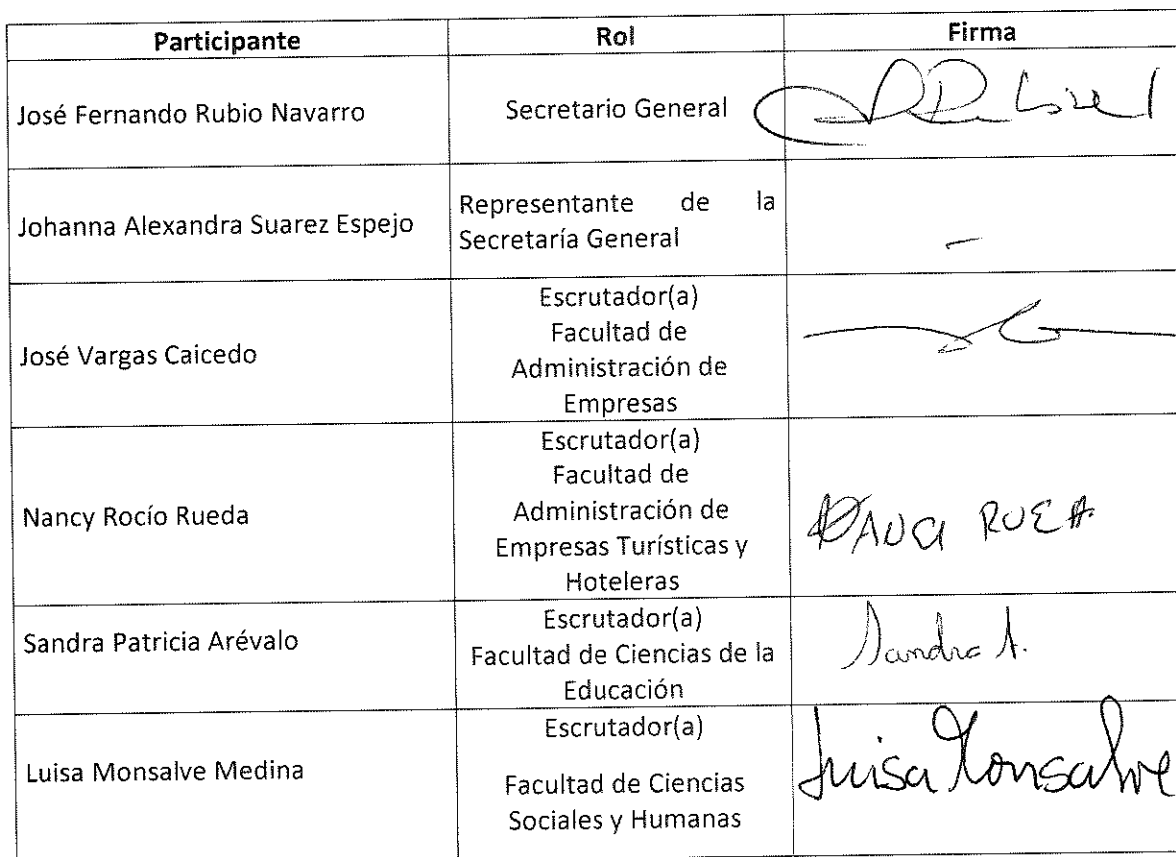 Participante Rol Firma
José Fernando Rubio Navarro Secretario General
Johanna Alexandra Suarez Espejo
Representante de la
Secretaría General
-
José Vargas Caicedo
Escrutador(a)
Facultad de
Administración de
Empresas
Nancy Rocío Rueda
Escrutador(a)
Facultad de
Administración de
Empresas Turísticas y
Hoteleras
Sandra Patricia Arévalo
Escrutador(a)
Facultad de Ciencias de la
Educación
Sandra A.
Luisa Monsalve Medina
Escrutador(a)
Facultad de Ciencias
Sociales y Humanas
Luisa Monsalve